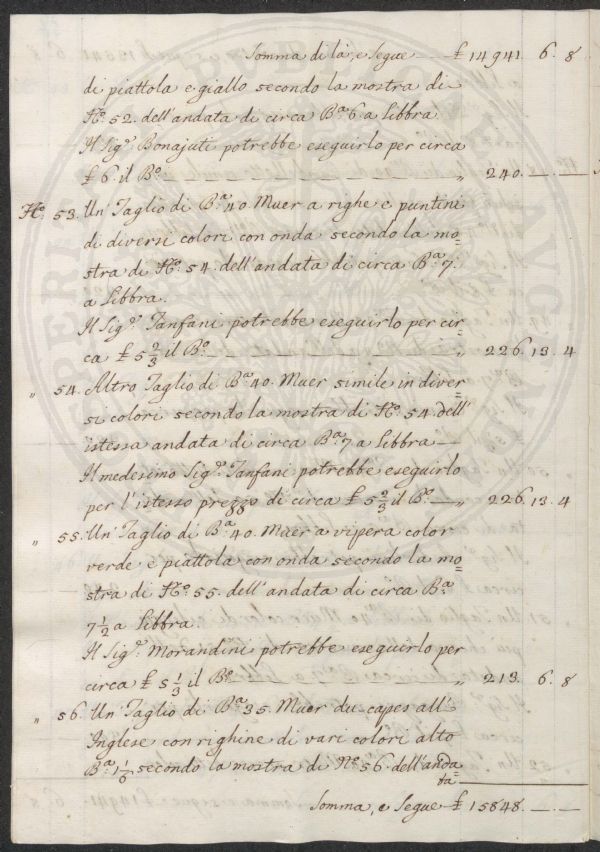 Somma di là, e Segue £ 14941. 6. 8
di piattola e giallo secondo la mostra di
N.º 52. dell'andata di circa B.ª 6 a Libbra.
Il Sig.º Bonajuti potrebbe eseguirlo per circa
£ 6. il B.º „ 240. — —
N.º 53. Un' Taglio di B.ª 40. Muer a righe e puntini
di diversi colori con onda secondo la mo=
stra di N.º 54. dell'andata di circa B.ª 7.
a Libbra.
Il Sig.º Fanfani potrebbe eseguirlo per cir=
ca £ 5 2/3 il B.º „ 226. 13. 4
„ 54. Altro Taglio di B.ª 40. Muer simile in diver=
si colori secondo la mostra di N.º 54. dell'
istessa andata di circa B.ª 7 a Libbra —
Il medesimo Sig.º Fanfani potrebbe eseguirlo
per l'istesso prezzo di circa £ 5 2/3 il B.º — „ 226. 13. 4
„ 55. Un' Taglio di B.ª 40. Muer a vipera color
verde e piattola con onda secondo la mo=
stra di N.º 55. dell'andata di circa B.ª
7 1/2 a Libbra.
Il Sig.º Morandini potrebbe eseguirlo per
circa £ 5 1/3 il B.º „ 213. 6. 8
„ 56. Un' Taglio di B.ª 35. Muer du capes all'=
Inglese con righine di vari colori alto
B.ª 1 1/6 secondo la mostra di N.º 56. dell'anda=
ta
Somma, e Segue £ 15848. — —